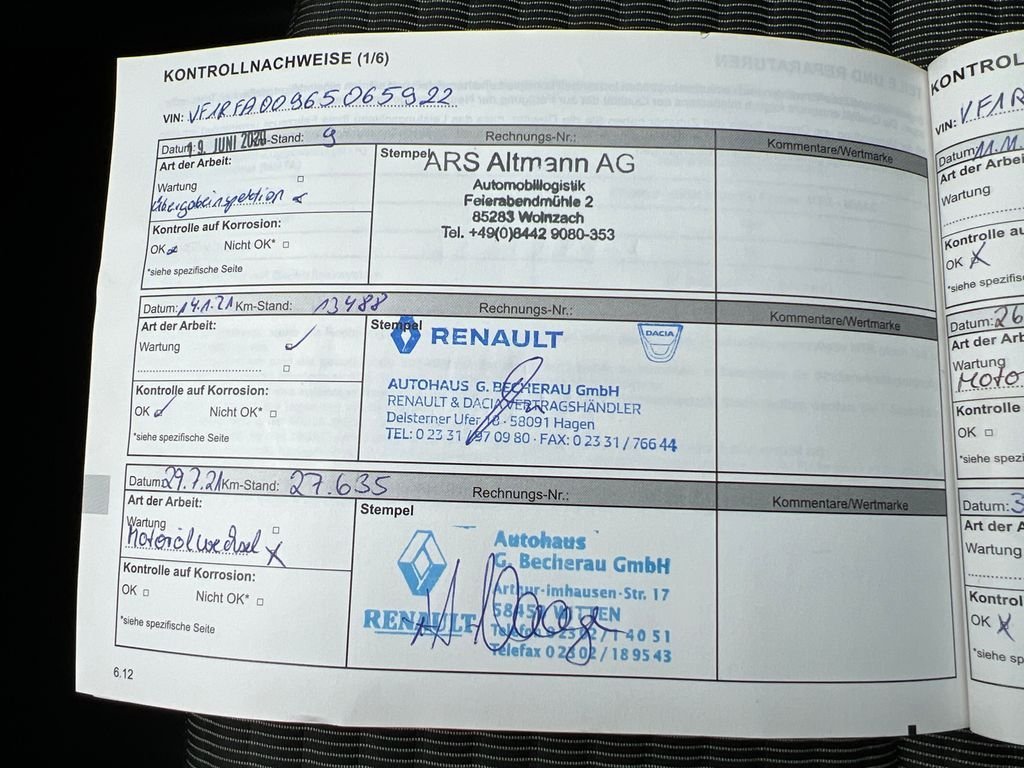 KONTROLLNACHWEISE (1/6)
VIN: VF1RFA00965065922
Datum: 19. JUNI 2020 -Stand: 9 Rechnungs-Nr.: Kommentare/Wertmarke
Art der Arbeit:
Wartung
Übergabeinspektion
Kontrolle auf Korrosion:
OK Nicht OK*
*siehe spezifische Seite
Stempel
ARS Altmann AG
Automobillogistik
Feierabendmühle 2
85283 Wolnzach
Tel. +49(0)8442 9080-353
Datum: 14.1.21 Km-Stand: 13488 Rechnungs-Nr.: Kommentare/Wertmarke
Art der Arbeit:
Wartung
Kontrolle auf Korrosion:
OK Nicht OK*
*siehe spezifische Seite
Stempel
RENAULT DACIA
AUTOHAUS G. BECHERAU GmbH
RENAULT & DACIA VERTRAGSHÄNDLER
Delsterner Ufer 18 - 58091 Hagen
TEL: 0 23 31 / 97 09 80 · FAX: 0 23 31 / 766 44
Datum: 29.7.21 Km-Stand: 27.635 Rechnungs-Nr.: Kommentare/Wertmarke
Art der Arbeit:
Wartung
Motorölwechsel X
Kontrolle auf Korrosion:
OK Nicht OK*
*siehe spezifische Seite
Stempel
Autohaus
G. Becherau GmbH
Arthur-imhausen-Str. 17
58453 WITTEN
RENAULT
Telefon 0 23 02 / 1 40 51
Telefax 0 23 02 / 18 95 43
6.12
KONTROL
VIN: VF1R
Datum: 11.11.
Art der Arbei
Wartung
Kontrolle au
OK X
*siehe spezifisc
Datum: 26
Art der Arb
Wartung
Moto
Kontrolle
OK
*siehe spezi
Datum: 3
Art der A
Wartung
Kontrol
OK X
*siehe sp